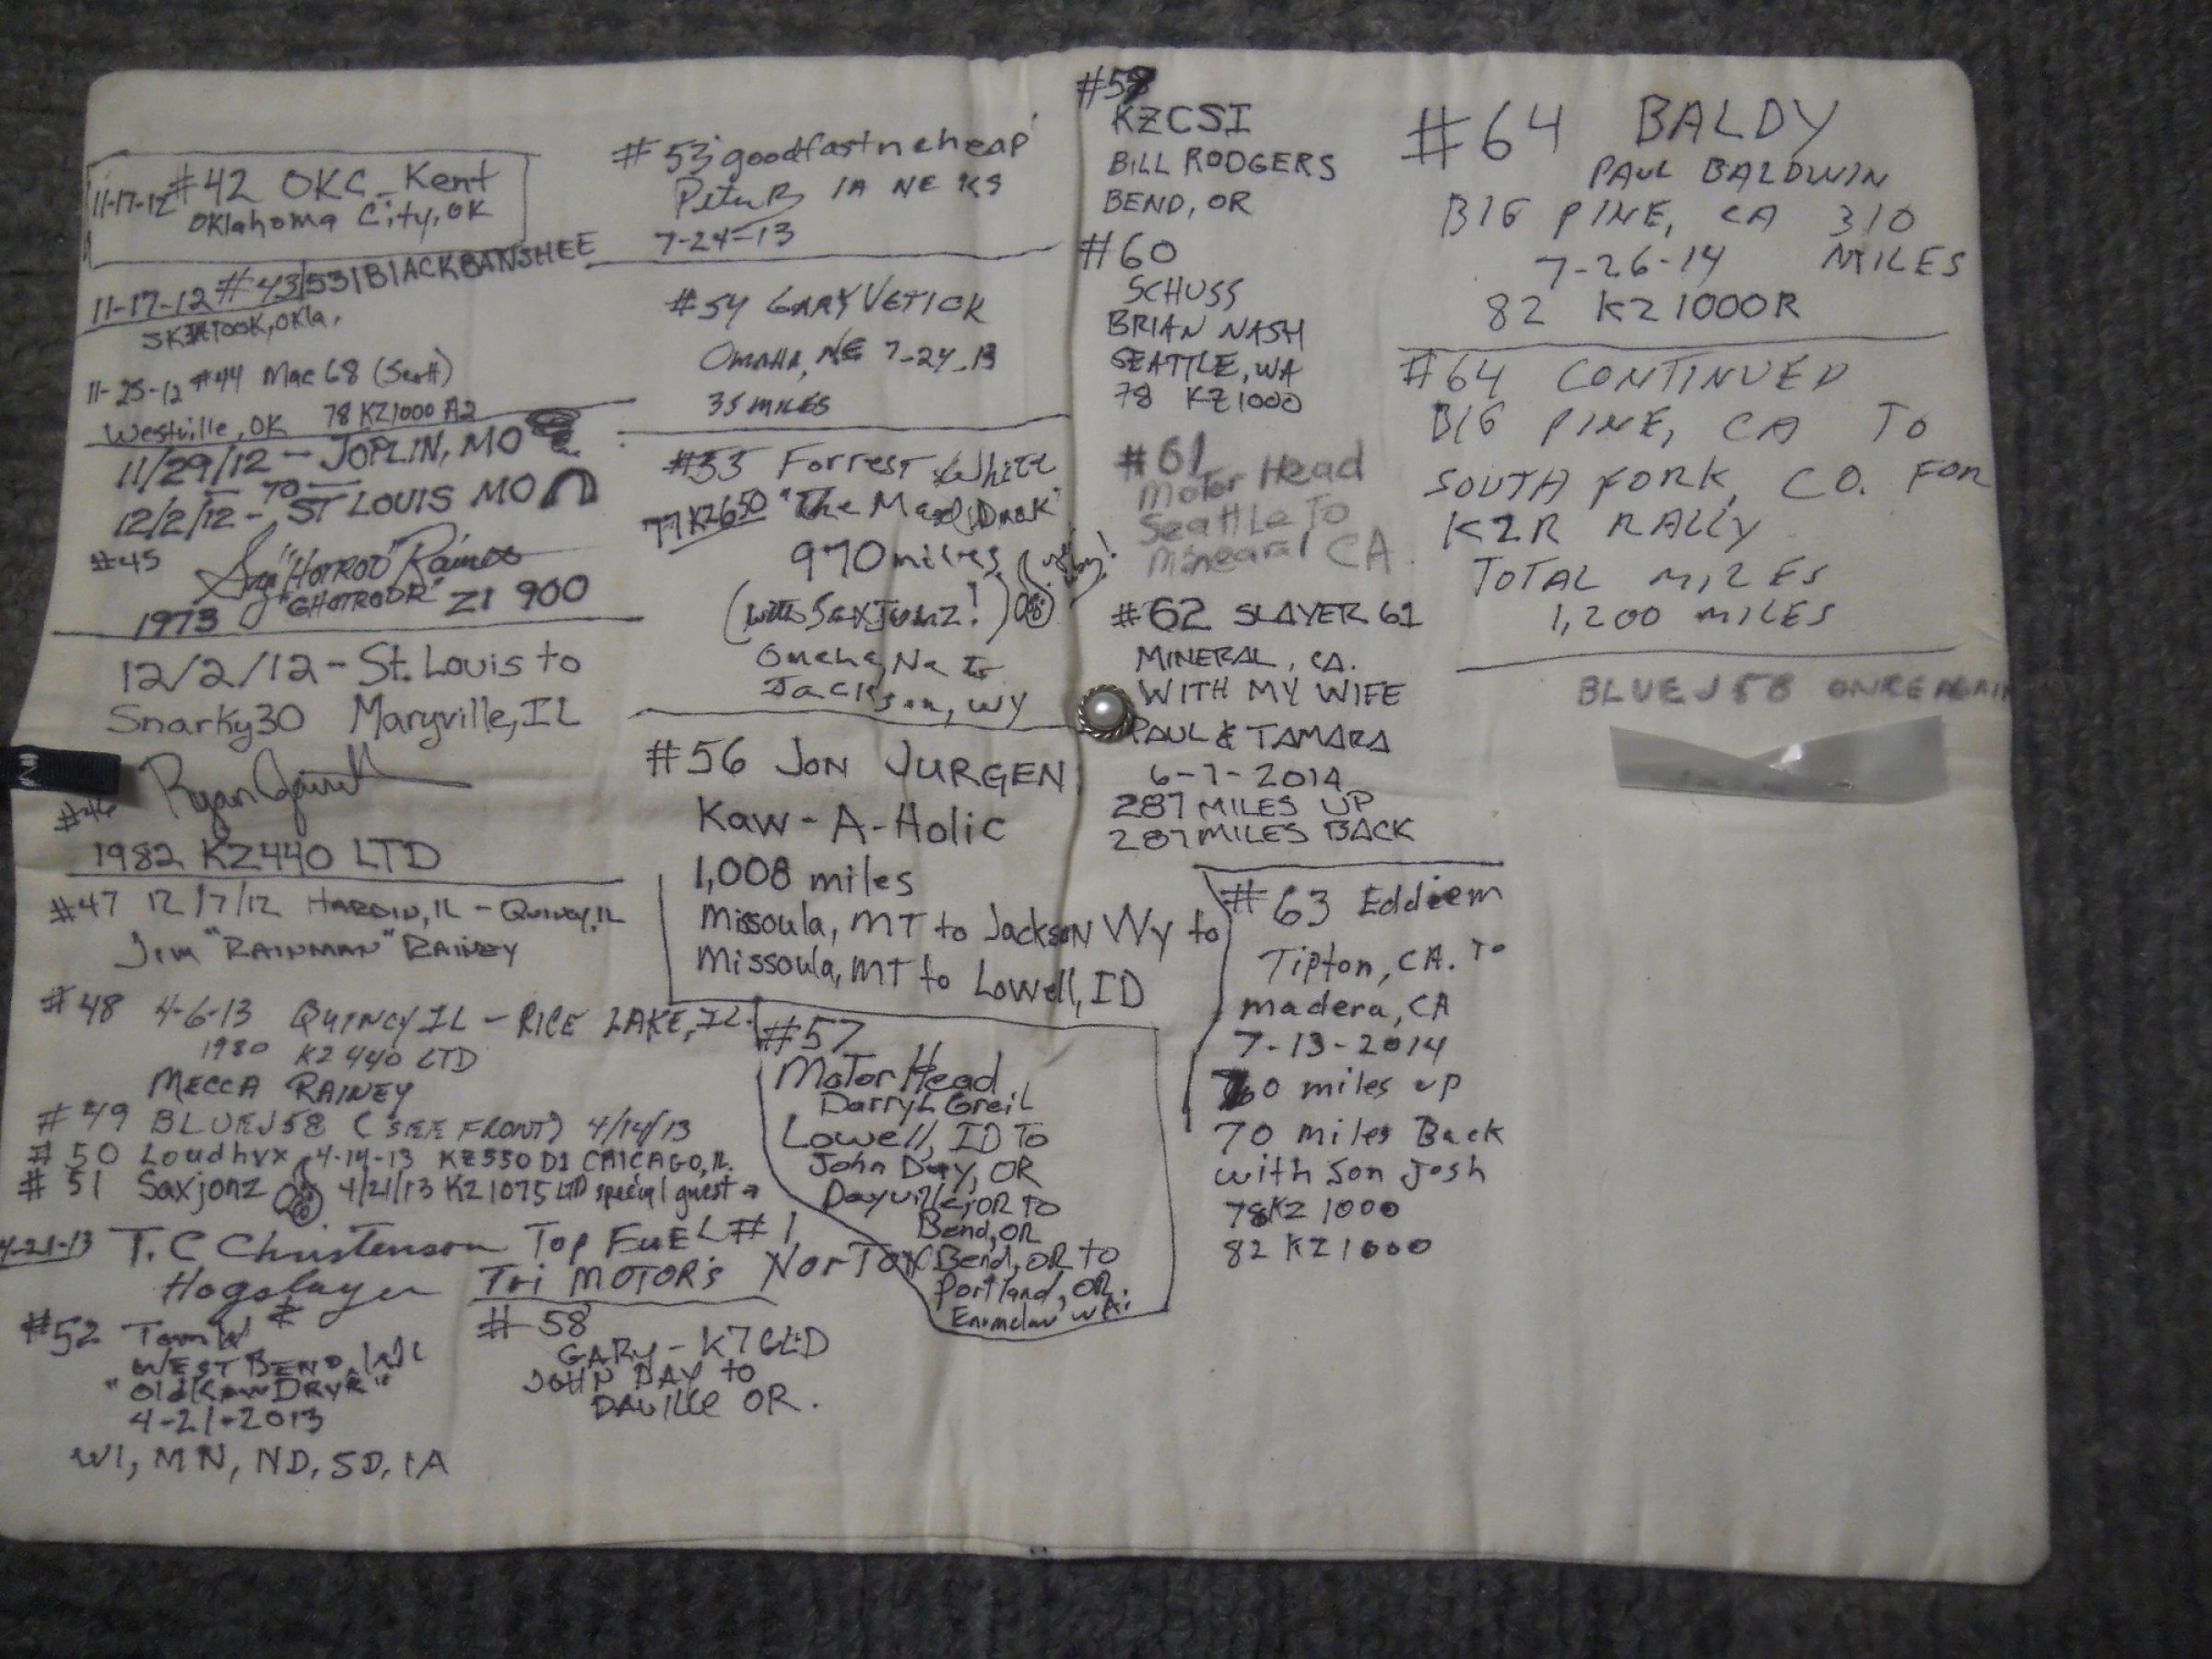 11-17-12 #42 OKC_Kent
Oklahoma City, OK
11-17-12 #43/531BlACKBANSHEE
SKIATOOK, OKla.
11-25-12 #44 Mac 68 (Scott)
Westville, OK 78 KZ1000 A2
11/29/12 - JOPLIN, MO
TO
12/2/12 - ST LOUIS MO
#45
"HOTROD" Raines
1973 "GHOTRODR" Z1 900
12/2/12 - St. Louis to
Snarky30 Maryville, IL
#46 Ryan
1982 KZ440 LTD
#47 12/7/12 HARDIN, IL - QUINCY, IL
Jim "RAINMAN" RAINEY
#48 4-6-13 QUINCY IL - RICE LAKE, IL.
1980 KZ 440 LTD
MECCA RAINEY
#49 BLUEJ58 (SEE FRONT) 4/14/13
#50 Loudhvx 4-14-13 KZ550 D1 CHICAGO, IL.
#51 Saxjonz 4/21/13 KZ1075 LTD special guest →
4-21-13 T.C Christenson TOP FUEL #1
Hogslayer Tri MOTOR's NorTon
#52 Tom W
WEST BEND, WI
"OldKawDRVR"
4-21-2013
WI, MN, ND, SD, IA
#53 goodfastncheap
Peter B IA NE KS
7-24-13
#54 GARY VETICK
OMAHA, NE 7-24-13
35 MILES
#55 Forrest White
77 KZ650 "The Mad Duck"
970 miles
(with SaxJonz!)
Omaha, Ne to
Jackson, WY
#56 JON JURGEN
Kaw-A-Holic
1,008 miles
Missoula, MT to Jackson Wy to
Missoula, MT to Lowell, ID
#57
MoTor Head
Darryl Greil
Lowell, ID To
John Day, OR
Dayville, OR To
Bend, OR
Bend, OR to
Portland, OR.
Enumclaw WA.
#58
GARY - K7GLD
JOHN DAY to
DAVILLe OR.
#59
KZCSI
BILL RODGERS
BEND, OR
#60
SCHUSS
BRIAN NASH
SEATTLE, WA
78 KZ1000
#61
Motor Head
Seattle To
Minearal CA
#62 SLAYER 61
MINERAL, CA.
WITH MY WIFE
PAUL & TAMARA
6-7-2014
287 MILES UP
287 MILES BACK
#63 Eddiem
Tipton, CA. To
madera, CA
7-13-2014
70 miles up
70 miles Back
with Son Josh
78KZ 1000
82 KZ1000
#64 BALDY
PAUL BALDWIN
BIG PINE, CA 310
7-26-14 MILES
82 KZ1000R
#64 CONTINUED
BIG PINE, CA TO
SOUTH FORK, CO. FOR
KZR RALLY
TOTAL MILES
1,200 MILES
BLUEJ58 ONCE AGAIN